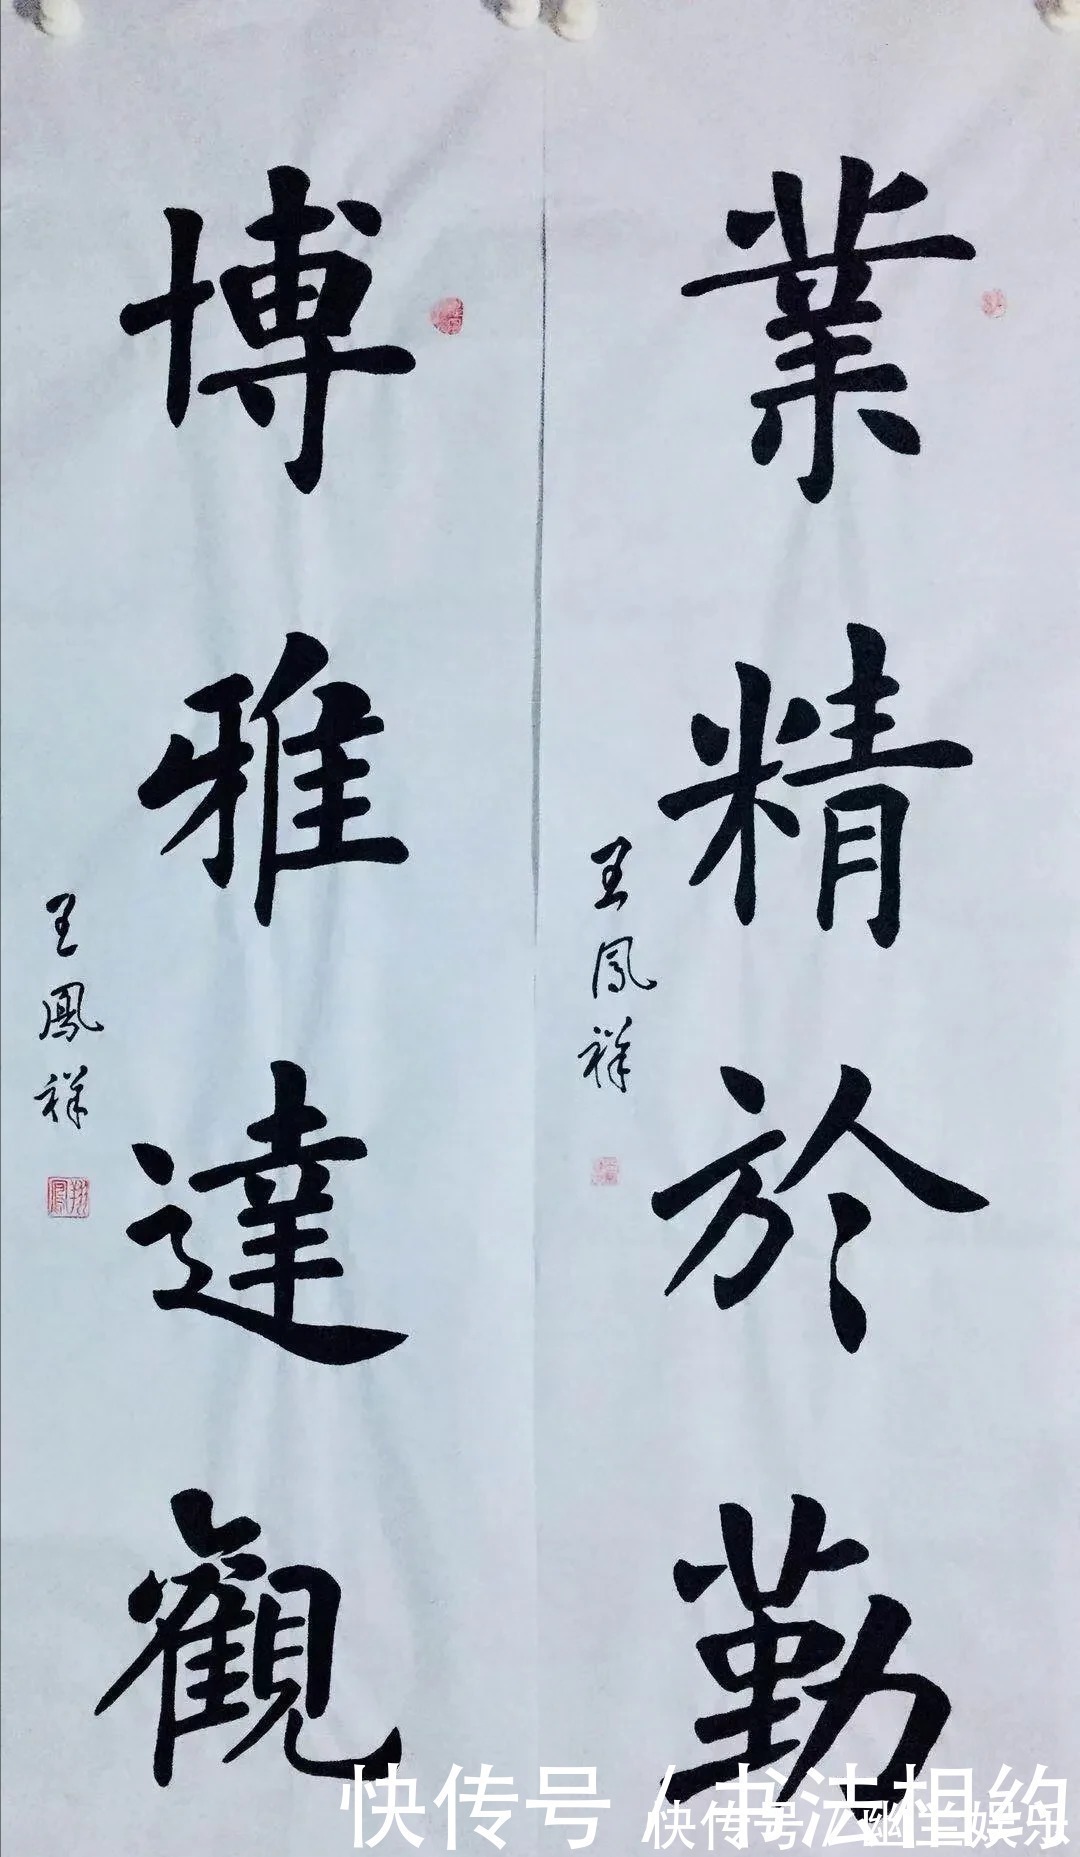 業精於勤
王鳳祥
博雅達觀
王鳳祥
快传号 / 书法相约
快传号 / 幽兰娱乐